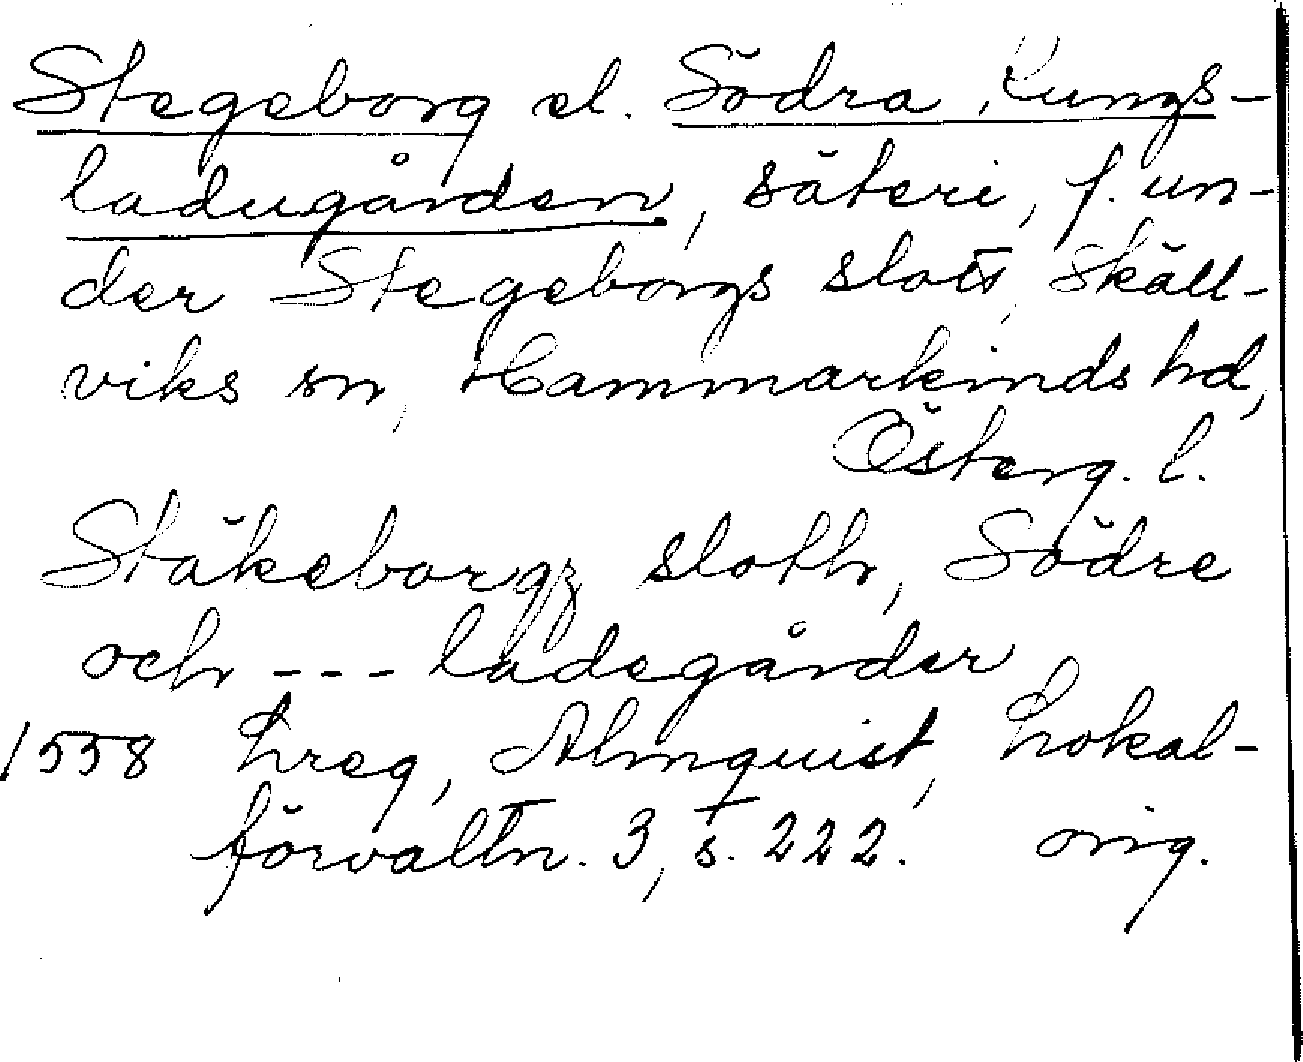 Stegeborg el. Södra Kungs-
ladugården, säteri, f. un-
der Stegeborgs slott, Skäll-
viks sn, Hammarkinds hd,
Österg. l.
Stäkeborgz sloth, Södre
och --- ladegårder
1558 hreg, Almquist, Lokal-
förvaltn. 3, s. 222. orig.